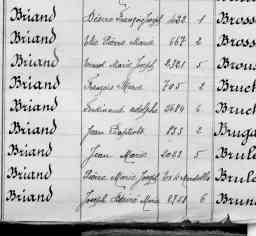 Briand Désiré François Joseph 422 1 Bross
Briand Elie Pierre Marie 667 2 Bross
Briand Ernest Marie Joseph 2321 5 Brous
Briand François Marie 705 2 Bruct
Briand Ferdinand Adolphe 2684 6 Bruct
Briand Jean Baptiste 2 Bruga
Briand Jean Marie 5 Brule
Briand Pierre Marie Joseph Brule
Briand Joseph Marie 6 Brun